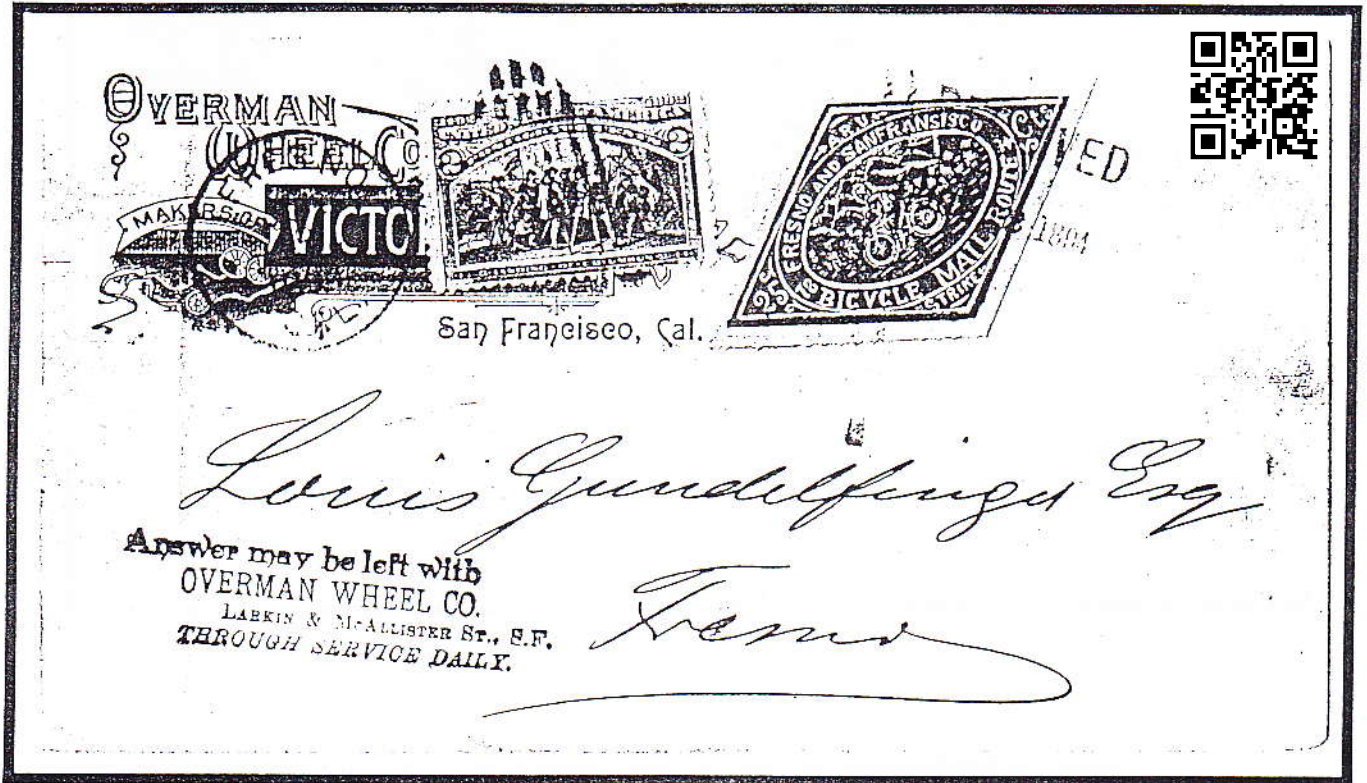 OVERMAN
WHEEL CO
MAKERS OF
VICTO
San Francisco, Cal.
2 2
FRESNO AND SAN FRANSISCO
BICYCLE MAIL ROUTE
A.R.U. STRIKE
25 Cts
ED
1894
Louis Gundelfinger Esq
Fresno
Answer may be left with
OVERMAN WHEEL CO.
LARKIN & McALLISTER ST., S.F.
THROUGH SERVICE DAILY.